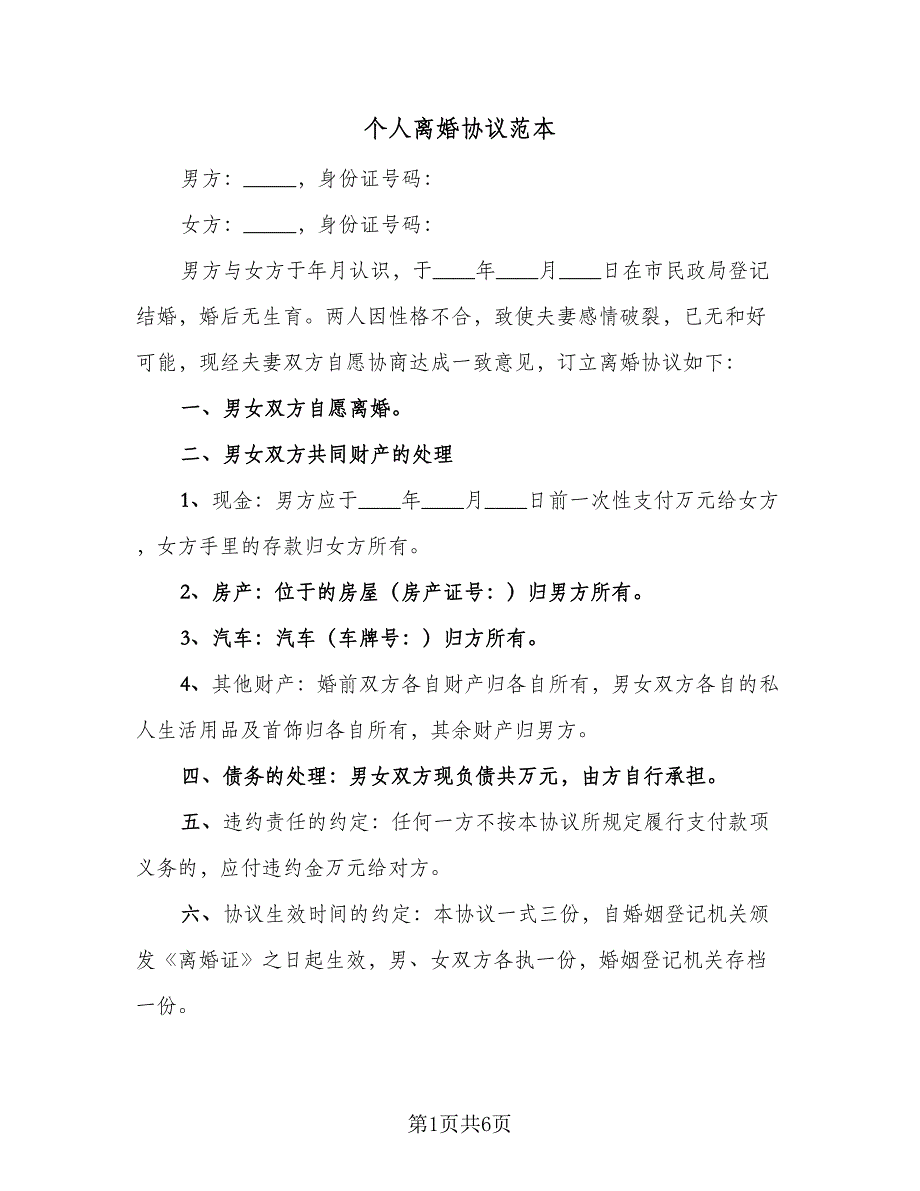 个人离婚协议范本
男方：_____，身份证号码：
女方：_____，身份证号码：
男方与女方于年月认识，于____年____月____日在市民政局登记
结婚，婚后无生育。两人因性格不合，致使夫妻感情破裂，已无和好
可能，现经夫妻双方自愿协商达成一致意见，订立离婚协议如下：
一、男女双方自愿离婚。
二、男女双方共同财产的处理
1、现金：男方应于____年____月____日前一次性支付万元给女方
，女方手里的存款归女方所有。
2、房产：位于的房屋（房产证号：）归男方所有。
3、汽车：汽车（车牌号：）归方所有。
4、其他财产：婚前双方各自财产归各自所有，男女双方各自的私
人生活用品及首饰归各自所有，其余财产归男方。
四、债务的处理：男女双方现负债共万元，由方自行承担。
五、违约责任的约定：任何一方不按本协议所规定履行支付款项
义务的，应付违约金万元给对方。
六、协议生效时间的约定：本协议一式三份，自婚姻登记机关颁
发《离婚证》之日起生效，男、女双方各执一份，婚姻登记机关存档
一份。
第1页共6页